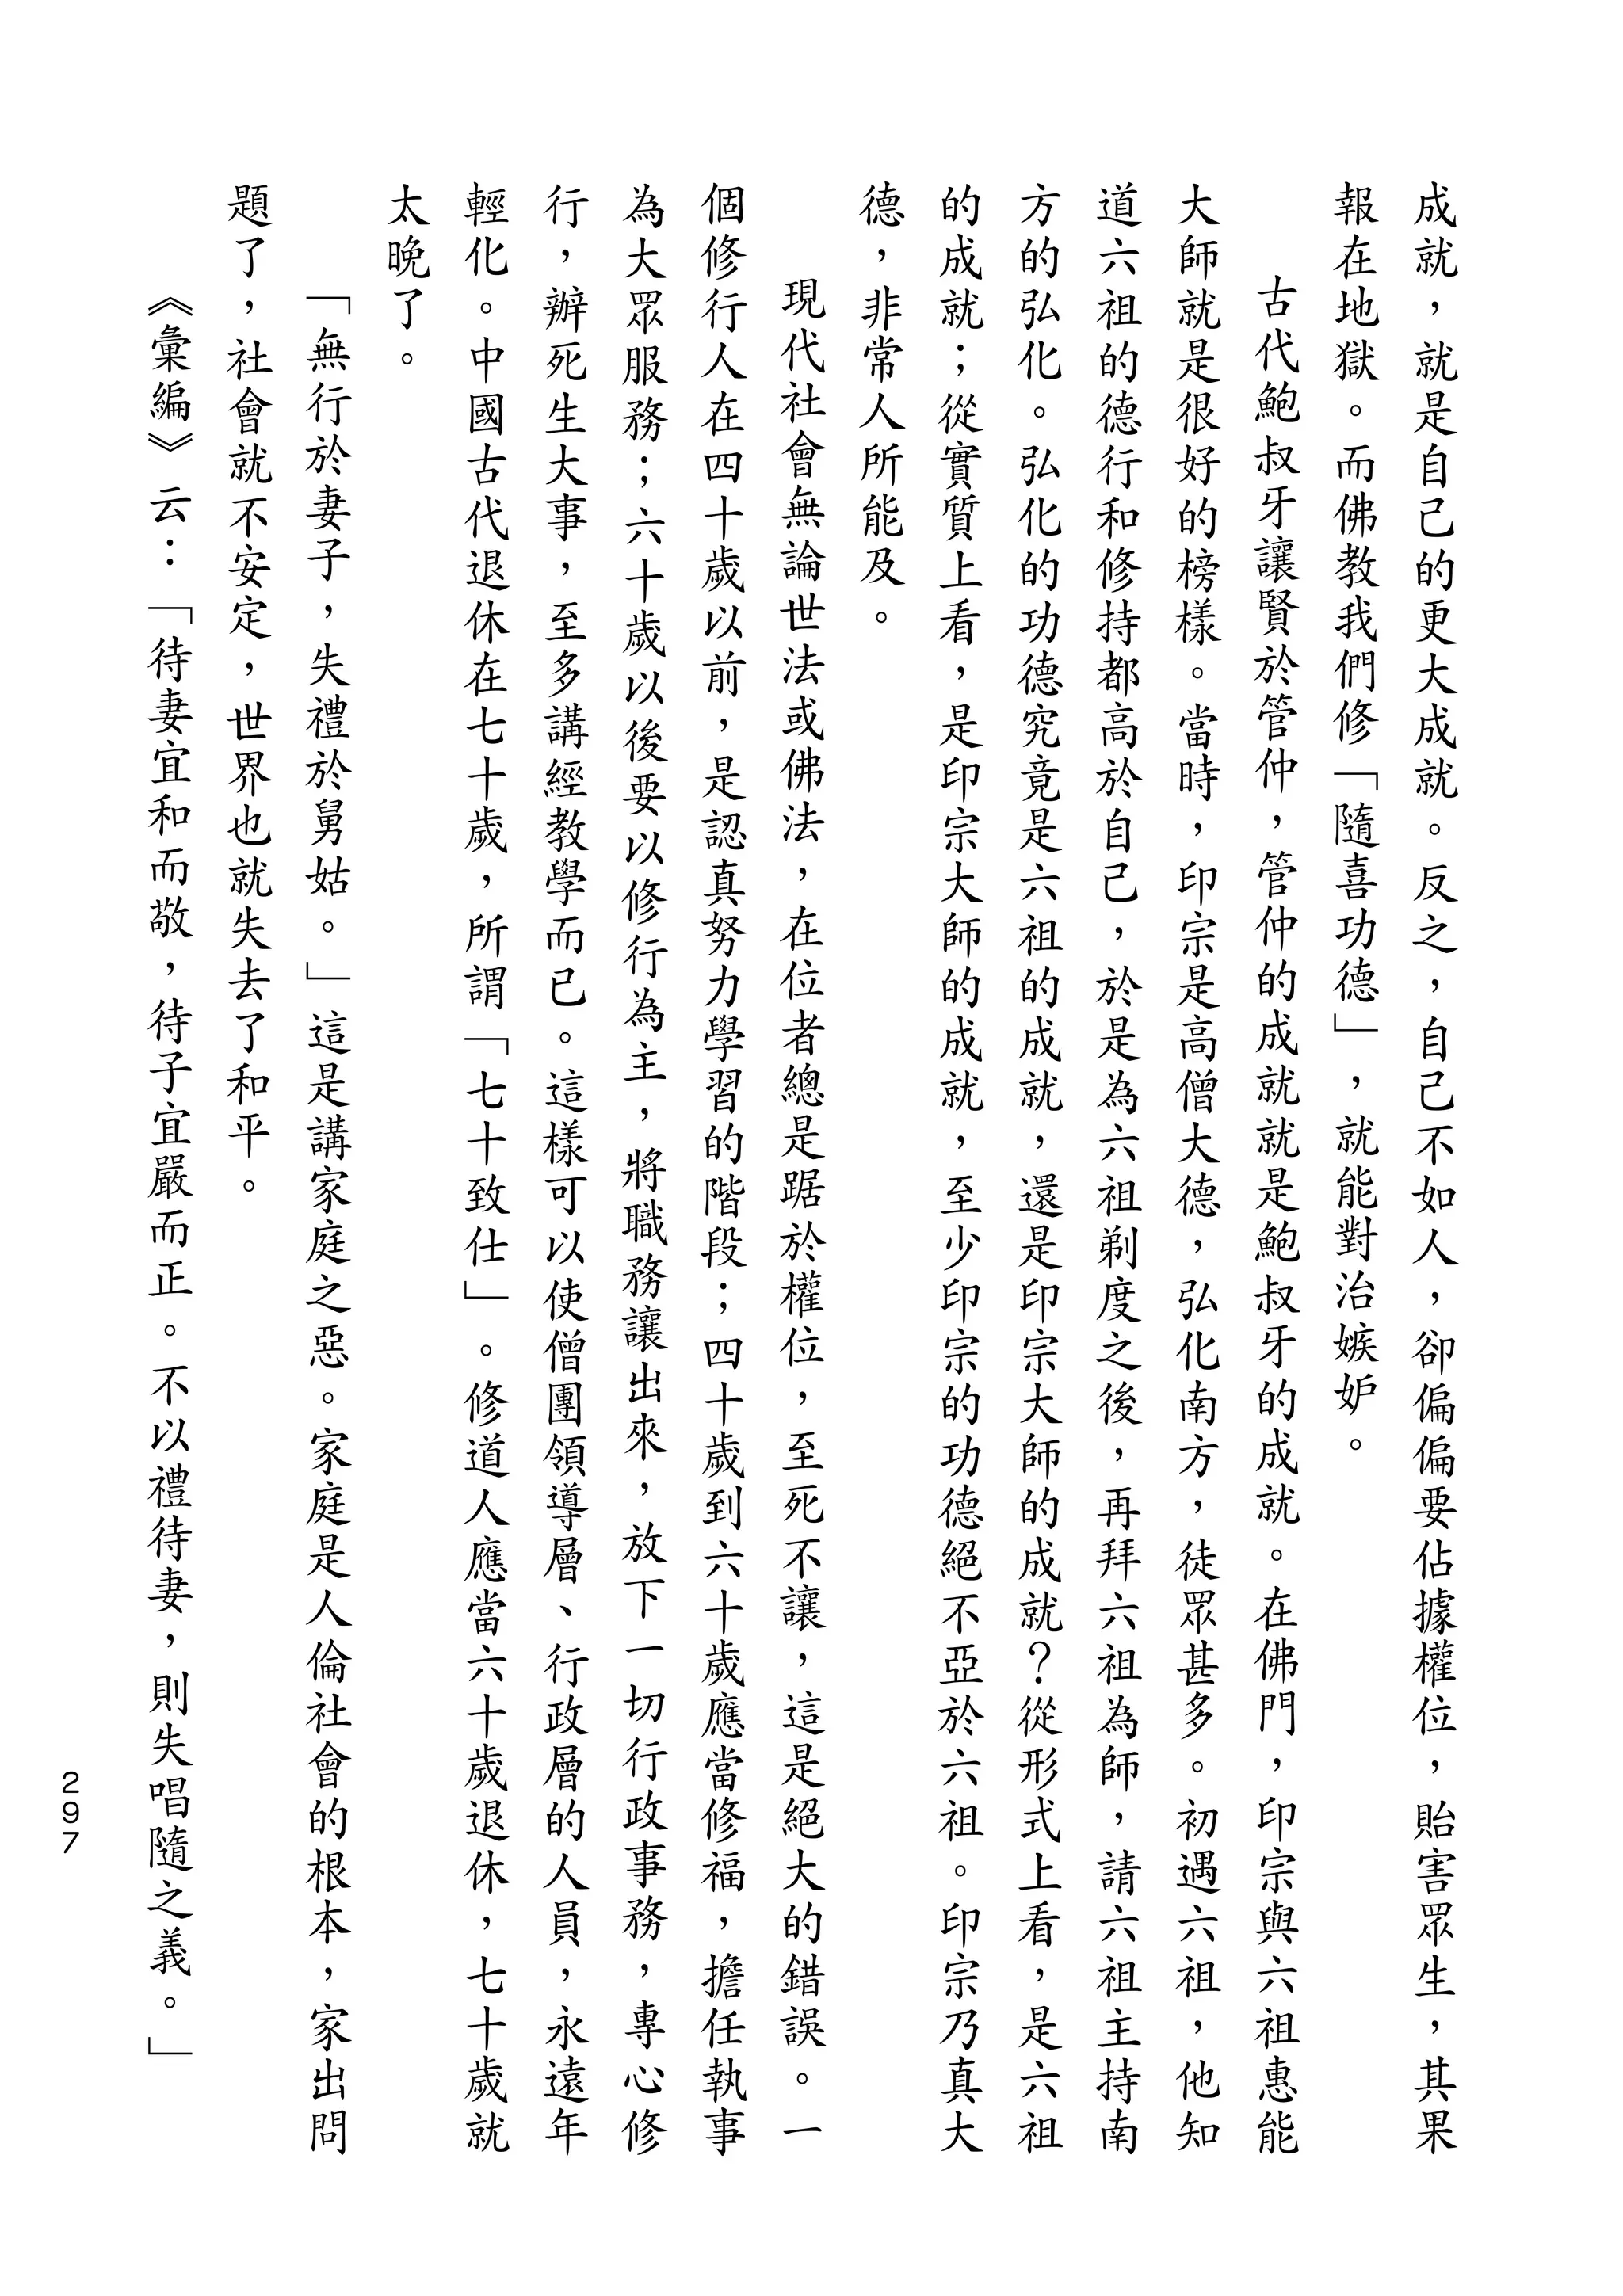 成就，就是自己的更大成就。反之，自己不如人，卻偏偏要佔據權位，貽害眾生，其果
報在地獄。而佛教我們修「隨喜功德」，就能對治嫉妒。
古代鮑叔牙讓賢於管仲，管仲的成就就是鮑叔牙的成就。在佛門，印宗與六祖惠能
大師就是很好的榜樣。當時，印宗是高僧大德，弘化南方，徒眾甚多。初遇六祖，他知
道六祖的德行和修持都高於自己，於是為六祖剃度之後，再拜六祖為師，請六祖主持南
方的弘化。弘化的功德究竟是六祖的成就，還是印宗大師的成就？從形式上看，是六祖
的成就；從實質上看，是印宗大師的成就，至少印宗的功德絕不亞於六祖。印宗乃真大
德，非常人所能及。
現代社會無論世法或佛法，在位者總是踞於權位，至死不讓，這是絕大的錯誤。一
個修行人在四十歲以前，是認真努力學習的階段；四十歲到六十歲應當修福，擔任執事
為大眾服務；六十歲以後要以修行為主，將職務讓出來，放下一切行政事務，專心修
行，辦死生大事，至多講經教學而已。這樣可以使僧團領導層、行政層的人員，永遠年
輕化。中國古代退休在七十歲，所謂「七十致仕」。修道人應當六十歲退休，七十歲就
太晚了。
「無行於妻子，失禮於舅姑。」這是講家庭之惡。家庭是人倫社會的根本，家出問
題了，社會就不安定，世界也就失去了和平。
《彙編》云：「待妻宜和而敬，待子宜嚴而正。不以禮待妻，則失唱隨之義。」
297